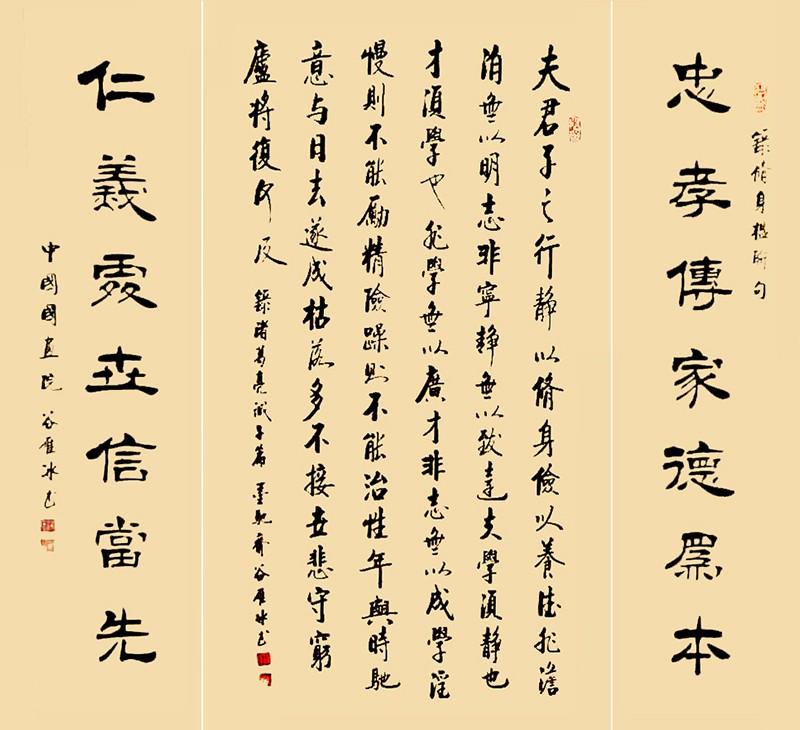 錄脩身楹聯句
忠孝傳家德為本
夫君子之行靜以脩身儉以養德非澹
泊無以明志非寧靜無以致遠夫學須靜也
才須學也非學無以廣才非志無以成學淫
慢則不能勵精險躁則不能治性年與時馳
意与日去遂成枯落多不接世悲守窮
廬將復何及
錄諸葛亮誡子篇 墨馳齋谷雁冰書
仁義處世信當先
中國國畫院 谷雁冰書